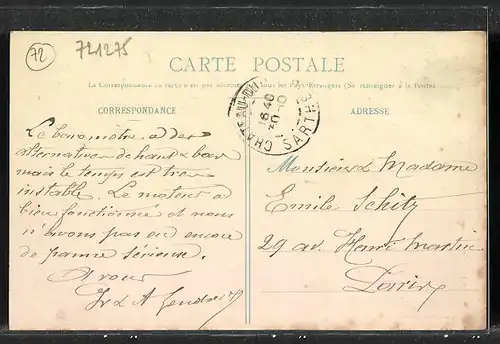 72
721275
CARTE POSTALE
La Correspondance au recto n'est pas acceptée par tous les Pays Étrangers (Se renseigner à la Poste)
CORRESPONDANCE
ADRESSE
CHATEAU-DU-
16 40
30-10
SARTHE
Le baromètre a des
alternatives de haut & bas
mais le temps est très
instable. Le moteur a
bien fonctionné et nous
n'avons pas eu encore
de panne sérieuse.
A vous
Monsieur & Madame
Emile Schitz
29 av. Henri Martin
Paris